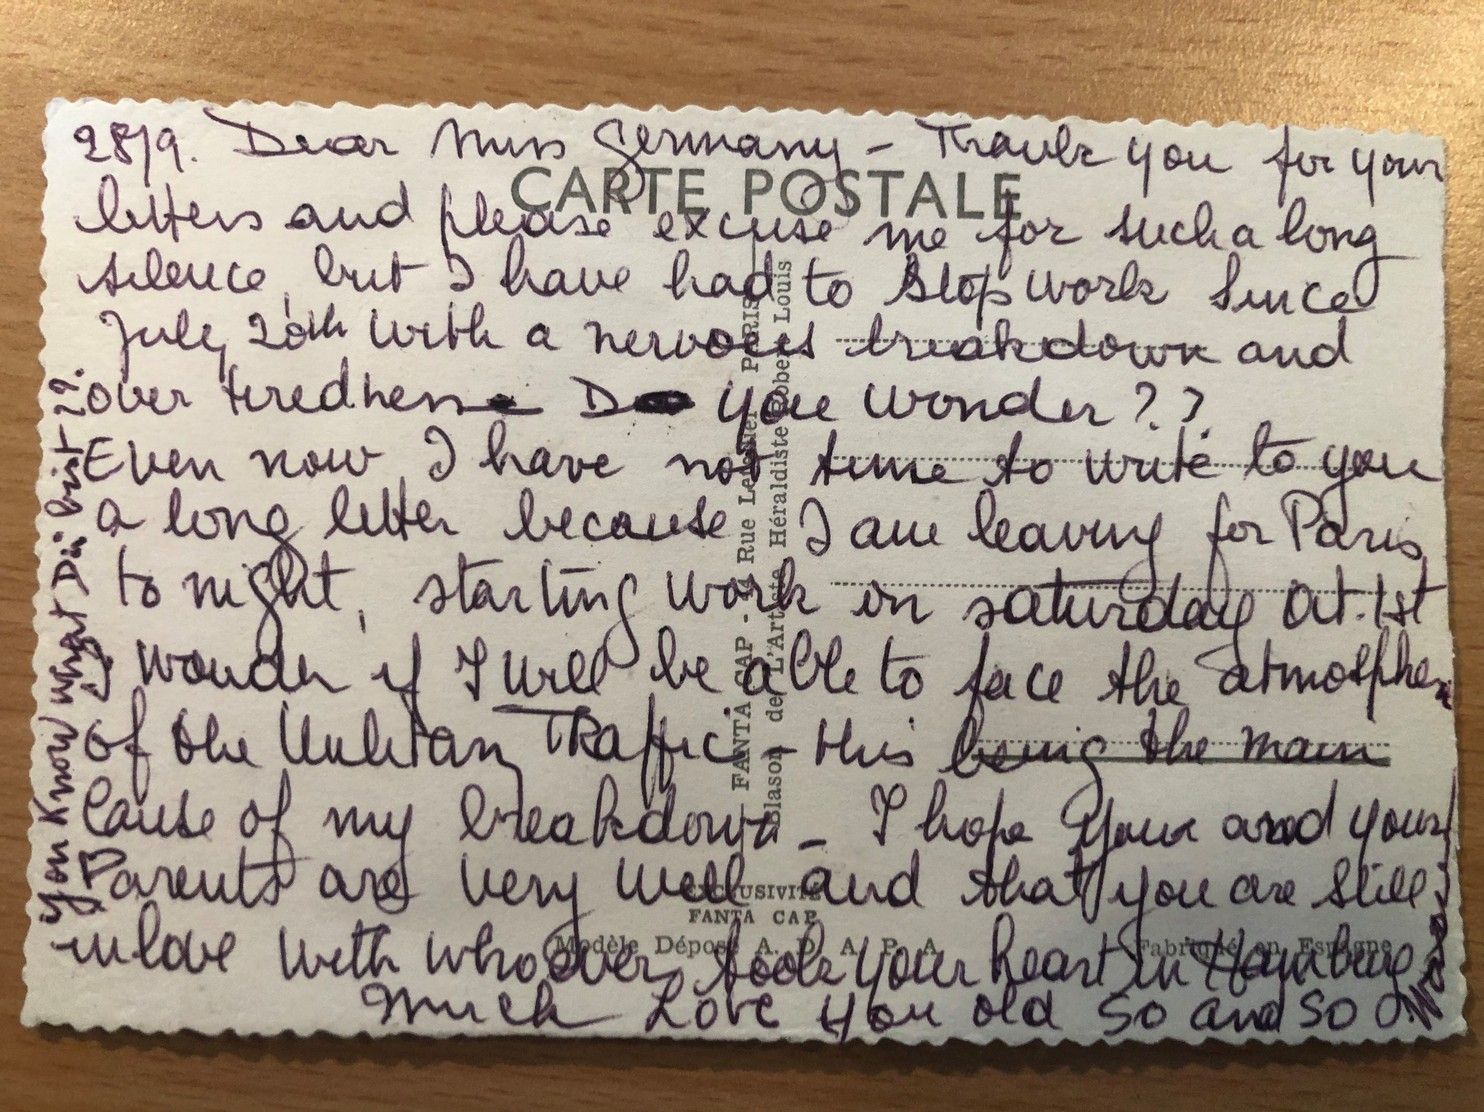 28/9. Dear Miss Germany – Thank you for your
letters and please excuse me for such a long
silence, but I have had to stop work since
July 20th with a nervous breakdown and
over tiredness Do you wonder??
Even now I have not time to write to you
a long letter because I am leaving for Paris
to night, starting work on saturday Oct. 1st
I wonder if I will be able to face the atmosphere
of the Traffic – this being the main
cause of my breakdown – I hope you and your
Parents are very well and that you are still
in love with whoever took your heart in Hamburg
Much Love you old so and so
you know what Du bist
CARTE POSTALE
FANTA CAP - Rue PARIS
Blason de L'Artiste Héraldiste Robert Louis
EXCLUSIVITÉ
FANTA CAP
Modèle Déposé A. D. A. P. A.
Fabriqué en Espagne